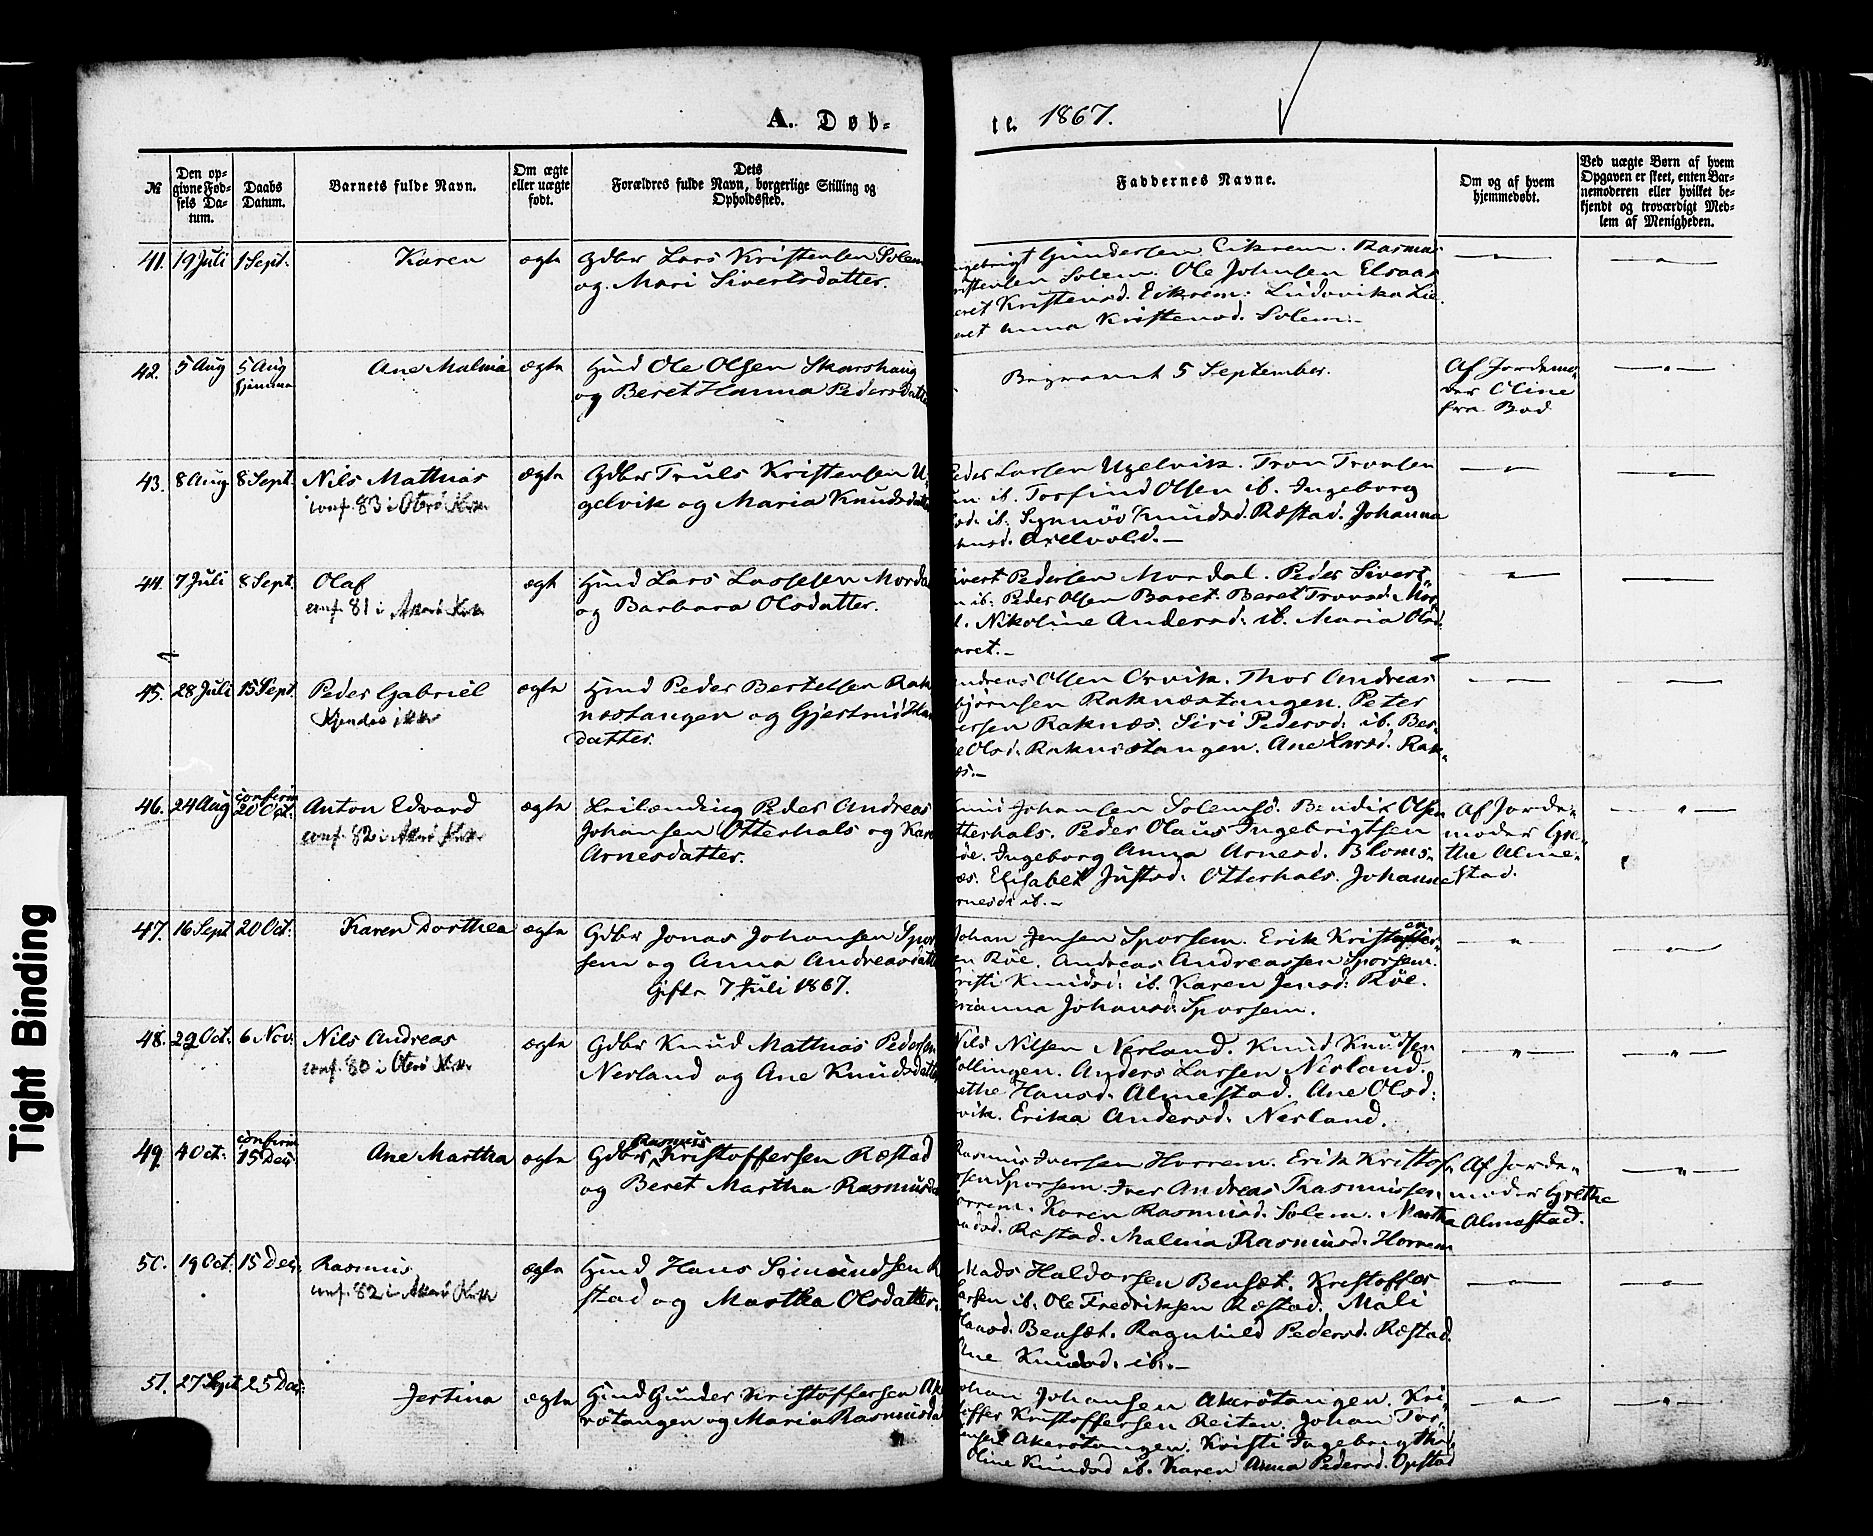 A. Døb-
te. 1867.
№
Den op-
givne Fød-
sels Da-
tum.
Daabs
Datum.
Barnets fulde Navn.
Om ægte
eller uægte
født.
Dets
Forældres fulde Navn, borgerlige Stilling og
Opholdssted.
Faddernes Navne.
Om og af hvem
hjemmedøbt.
Ved uægte Børn af hvem
Opgaven er skeet, enten Bar-
nemoderen eller hvilket be-
kjendt og troværdigt Med-
lem af Menigheden.
41. 19 Juli 1 Sept. Karen ægte Gdbr Lars Kristensen Solem
og Mari Sivertsdatter.
Gundersen Eikrem. Rasmus
Solem. Ole Johnsen Elsaas
Kristensd. Eikrem. Ludovika Lie.
Anna Kristensd. Solem.
42. 5 Aug 5 Aug hjemme Ane Malina ægte Hmd Ole Olsen Skarshaug
og Beret Hanna Pedersdatter
Begravet 5 September.
Af Jordemo-
der Oline
fra Bod
43. 8 Aug 8 Sept. Nils Mathias ægte Gdbr Truls Kristensen U-
conf. 83 i Oterø Kirke
gelvik og Maria Knudsdatter
Peder Larsen Ugelvik. Tron Tronsen
ib. Torfind Olsen ib. Ingeborg
ib. Synnøv Knudsd. Ræstad. Johanna
Arelvold.
44. 7 Juli 8 Sept. Olaf ægt Hmd Lars Lassesen Mordal
conf. 81 i Akerø Kirke
og Barbara Olsdatter.
Sivert Pedersen Mordal. Peder Sivert-
ib. Peder Olsen Baret. Beret Tronsd. Mor-
Nikoline Andersd. ib. Maria Olsd.
Baret.
45. 28 Juli 15 Sept. Peder Gabriel ægte Hmd Peder Bertelsen Rak-
Kjendes ikke
næstangen og Gjertrud
datter.
Andreas Olsen Orvik. Thor Andreas
Raknæstangen. Peter
Raknæs. Siri Pedersd. ib. Ber-
Olsd. Raknæstangen. Ane Larsd. Rak-
næs.
46. 24 Aug confirm 20 Oct. Anton Edvard ægte Leilænding Peder Andreas
conf. 82 i Akerø Kirke
Johansen Otterhals og Karen
Arnesdatter.
Johansen Solemsd. Bendix Olsen
Otterhals. Peder Olaus Ingebrigtsen
Røe. Ingeborg Anna Arnesd. Bloms-
næs. Elisabet Justsd. Otterhals. Johanne
Arnesd. ib.
Af Jorde-
moder Gre-
the Alme-
stad.
47. 16 Sept. 20 Oct. Karen Dorthea ægte Gdbr Jonas Johansen Spor-
sem og Anna Andreasdatter
Gifte 7 Juli 1867.
Johan Jensen Sporsem. Erik Kristoffer-
sen Røe. Andreas Andreassen Sporsem.
Kristi Knudsd. ib. Karen Jensd. Røe.
Johansd. Sporsem.
48. 29 Oct. 6 Nov. Nils Andreas ægte Gdbr Knud Mathias Pedersen
conf. 80 i Oterø Kirke
Nerland og Ane Knudsdatter
Nils Nilsen Nerland. Knud Knudsen
Anders Larsen Nerland.
Grethe Hansd. Almestad. Ane Olsd.
Erika Andersd. Nerland.
49. 4 Oct. confirm 15 Dec. Ane Martha ægte Gdbr Rasmus Kristoffersen Ræstad
og Beret Martha Rasmusd.
Rasmus Iversen Horrem. Erik Kristof-
fersen Sporsem. Iver Andreas Rasmussen
Horrem. Karen Rasmusd. Solem. Martha
Ræstad. Malina Rasmusd. Horrem
Af Jorde-
moder Grethe
Almestad.
50. 19 Oct. 15 Dec. Rasmus ægte Hmd Hans Seimundsen Ræ-
conf. 82 i Akerø Kirke
stad og Martha Olsdatter.
Mads Haldorsen Bensæt. Kristoffer
ib. Ole Fredriksen Ræstad. Mali
Hansd. Bensæt. Ragnhild Pedersd. Ræstad
Ane Knudsd. ib.
51. 27 Sept 25 Dec. Jertina ægte Hmd Gunder Kristoffersen Ak-
røtangen og Maria Rasmusda
Johan Johansen Akerøtangen. Kri-
stoffer Kristoffersen Reiten. Johan Tor-
Akerøtangen. Kristi Ingeborg
Oline Knudsd ib. Karen Anna Pedersd. Opstad
Tight Binding